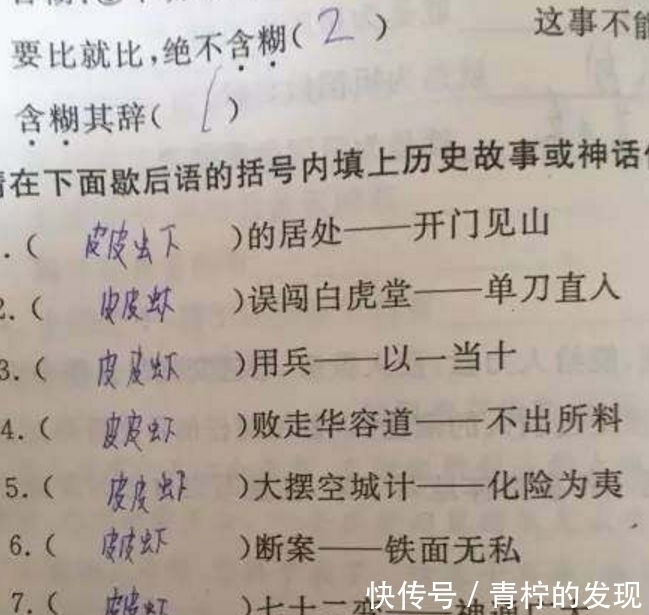 要比就比,绝不含糊( 2 ) 这事不能
含糊其辞( 1 )
请在下面歇后语的括号内填上历史故事或神话
.( 皮皮虫下 )的居处——开门见山
2.( 皮皮虾 )误闯白虎堂——单刀直入
3.( 皮皮虾 )用兵——以一当十
4.( 皮皮虾 )败走华容道——不出所料
5.( 皮皮虾 )大摆空城计——化险为夷
6.( 皮皮虾 )断案——铁面无私
7.( 皮皮虾 )七十二变
快传号 / 青柠的发现